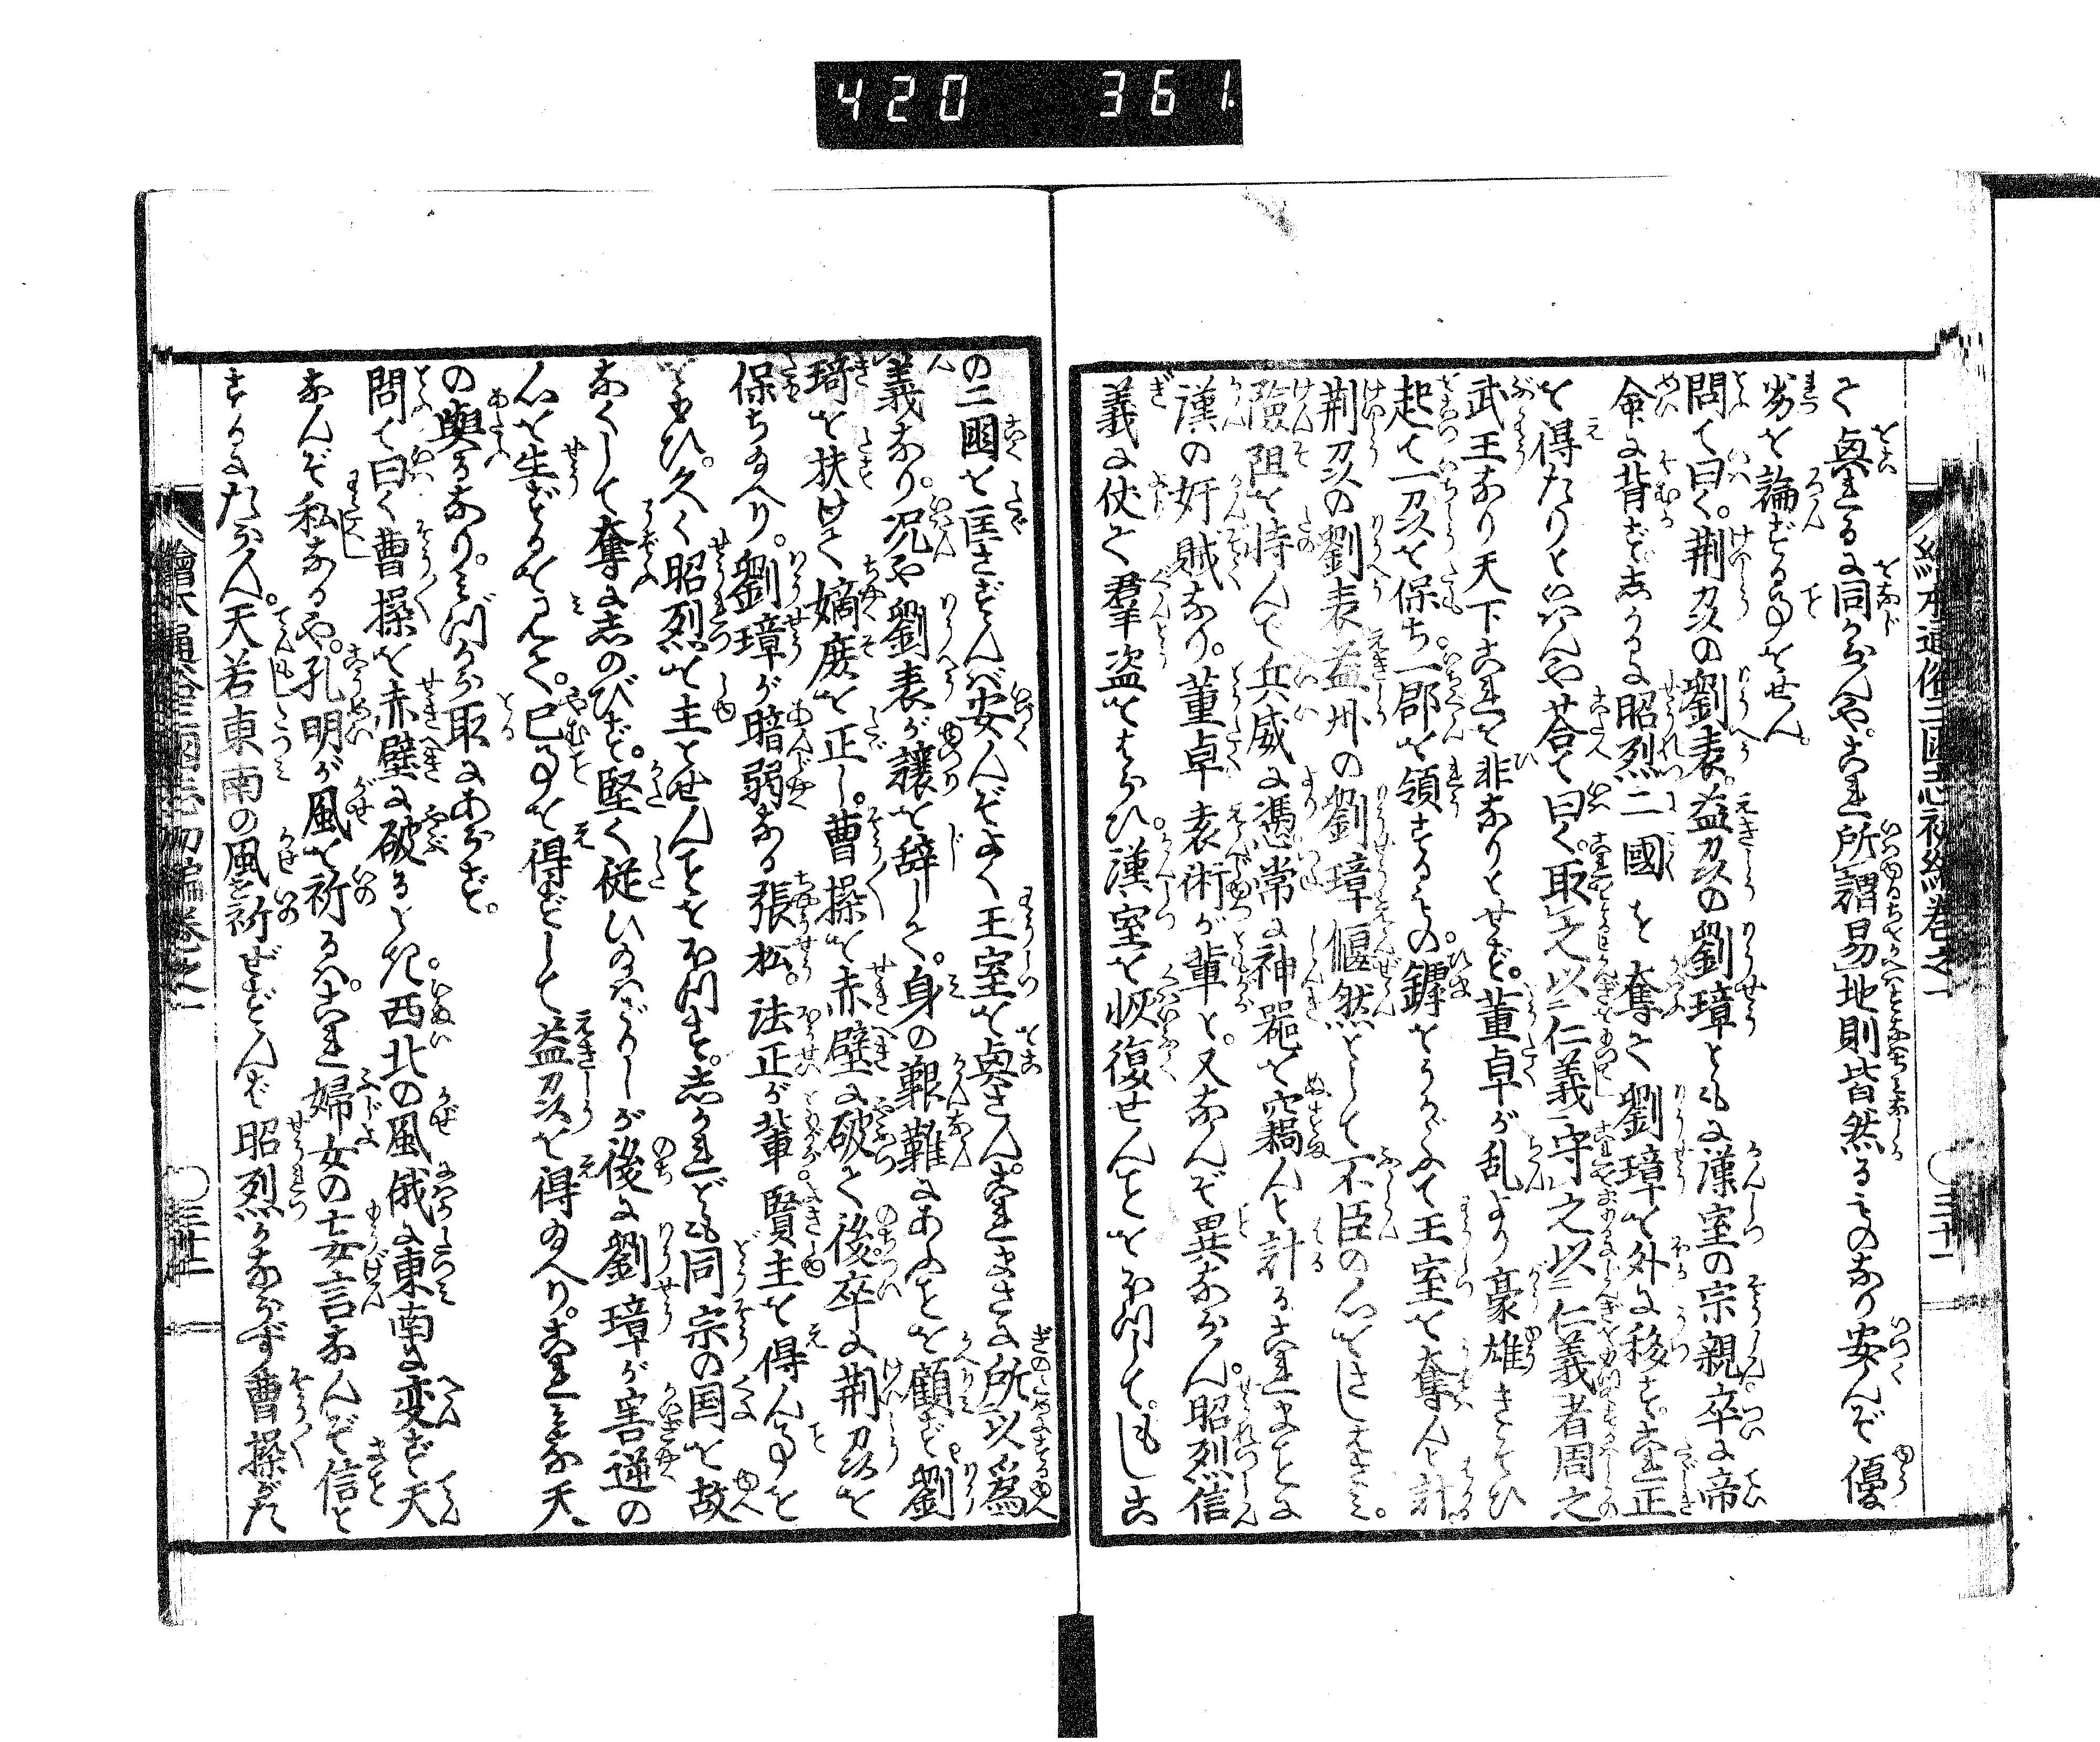 420 361
繪本通俗三國志初編卷之一 三十一
て輿るに同からんや。これ所謂易地則皆然るものなり安んぞ優
劣を論ずる事をせん。
問て曰く。荆刕の劉表。益刕の劉璋ともに漢室の宗親卒に帝
命に背ずしかるに昭烈二國を奪て劉璋を外に移す。これ正
を得たりといはんや荅て曰く。取之以仁義守之以仁義者周之
武王なり天下これを非なりとせず。董卓が乱より豪雄きそひ
起て一刕を保ち。一郡を領するもの。鏬をうかゞふて王室を奪んと計
荆刕の劉表益州の劉璋偃然として不臣の心をさしはさみ。
險阻を恃んで兵威に憑常に神器を竊んと計るこれまことに
漢の奸賊なり。董卓袁術が輩と。又なんぞ異ならん。昭烈信
義に仗て羣盗をはらひ。漢室を恢復せんことを欲して。もしこ
の二國を匡さずんば安んぞよく王室を輿さん。これまさに所以爲
義なり。况や劉表が讓を辞して。身の艱難にあふことを顧ず劉
琦を扶けて嫡庶を正し。曹操を赤壁に破て後卒に荆刕を
保ち玉へり。劉璋が暗弱なる張松。法正が輩賢主を得ん事を
おもひ。久く昭烈を主とせんことを欲す。しかれども同宗の国を故
なくして奪に忍のびず。堅く従ひ玉はざりしが後に劉璋が害逆の
心を生ずるを見て。已事を得ずして益刕を得玉へり。これみな天
の與るなり。みづから取にあらず。
問て曰く曹操を赤壁に破るとき。西北の風俄に東南に変ず天
なんぞ私あるや。孔明が風を祈るは。これ婦女の妄言なんぞ信と
するにたらん。天若東南の風を祈ずんば昭烈かならず曹操がた
繪本通俗三國志初編卷之一 三十一